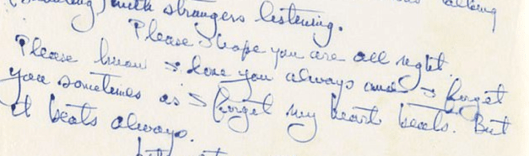 with strangers listening.
Please I hope you are all right
Please know I love you always and I forget
you sometimes as I forget my heart beats. But
it beats always.